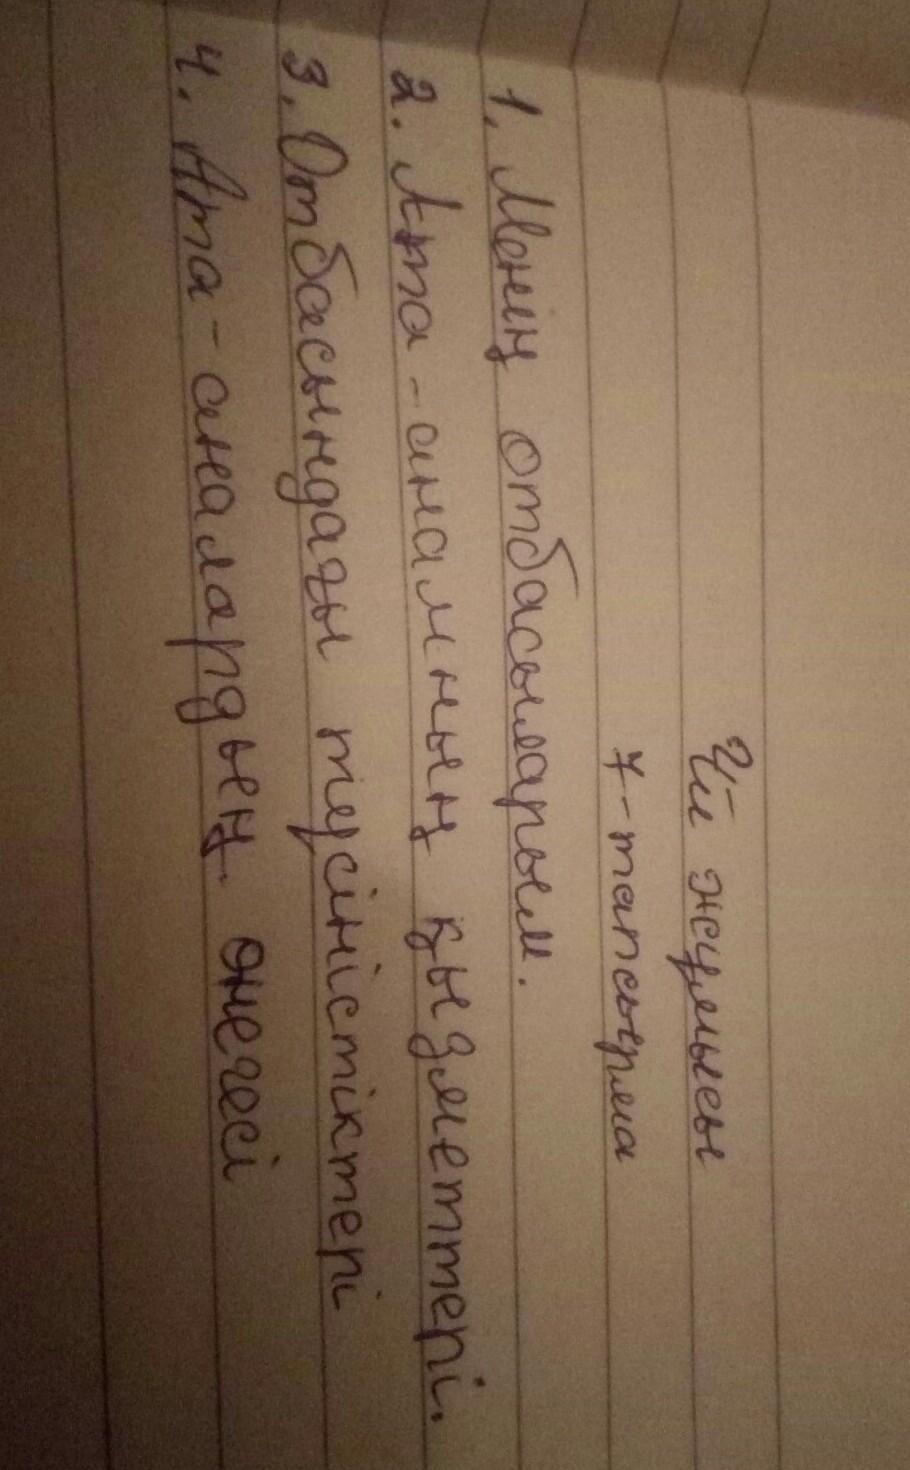 Үй жұмысы
7-тапсырма
1. Менің отбасыларым.
2. Ата-анамның қызметтері.
3. Отбасындағы түсіністіктері
4. Ата-аналардың. өнегесі